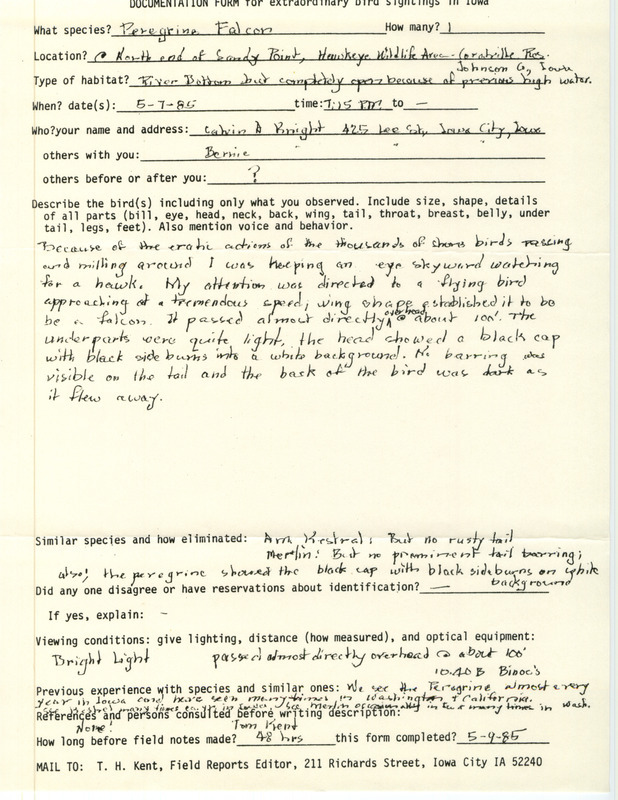 DOCUMENTATION FORM for extraordinary bird sightings in Iowa
What species? Peregrine Falcon How many? 1
Location? @ North end of Sandy Point, Hawkeye Wildlife Area - Coralville Res.
Johnson Co, Iowa
Type of habitat? River Bottom but completely open because of previous high water.
When? date(s): 5-7-85 time: 7:15 PM to —
Who? your name and address: Calvin Knight 425 Lee St, Iowa City, Iowa
others with you: Bernie " "
others before or after you: ?
Describe the bird(s) including only what you observed. Include size, shape, details
of all parts (bill, eye, head, neck, back, wing, tail, throat, breast, belly, under
tail, legs, feet). Also mention voice and behavior.
Because of the eratic actions of the thousands of shore birds
and milling around I was keeping an eye skyward watching
for a hawk. My attention was directed to a flying bird
approaching at a tremendous speed; wing shape established it to be
be a falcon. It passed almost directly overhead @ about 100'. The
underparts were quite light, the head showed a black cap
with black sideburns into a white background. No barring was
visible on the tail and the back of the bird was dark as
it flew away.
Similar species and how eliminated: Am. Kestral: But no rusty tail
Merlin: But no prominent tail barring;
also; the peregrine showed the black cap with black sideburns on white
background
Did any one disagree or have reservations about identification? —
If yes, explain: –
Viewing conditions: give lighting, distance (how measured), and optical equipment:
Bright Light passed almost directly overhead @ about 100'
10.40 B Binoc's
Previous experience with species and similar ones: We see the Peregrine almost every
year in Iowa and have seen many times in Washington & California.
See kestrel many times merlin occasionally in Ia & many times in Wash.
References and persons consulted before writing description:
None! Tom Kent
How long before field notes made? 48 hrs this form completed? 5-9-85
MAIL TO: T. H. Kent, Field Reports Editor, 211 Richards Street, Iowa City IA 52240